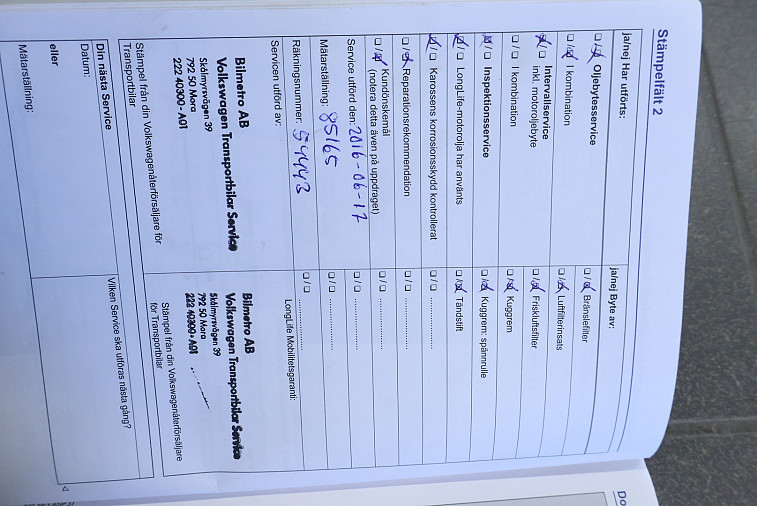 Stämpelfält 2
ja/nej Har utförts:
ja/nej Byte av:
☐/☒ Oljebytesservice
☐/☒ Bränslefilter
☐/☒ I kombination
☐/☒ Luftfilterinsats
☒/☐ Intervallservice
inkl. motoroljebyte
☐/☒ Friskluftsfilter
☐/☐ I kombination
☐/☒ Kuggrem
☒/☐ Inspektionsservice
☐/☒ Kuggrem: spännrulle
☒/☐ LongLife-motorolja har använts
☐/☒ Tändstift
☒/☐ Karossens korrosionsskydd kontrollerat
☐/☐ ..................
☐/☒ Reparationsrekommendation
☐/☐ ..................
☐/☒ Kundönskemål
(notera detta även på uppdraget)
☐/☐ ..................
Service utförd den: 2016-06-17
☐/☐ ..................
Mätarställning: 85165
☐/☐ ..................
Räkningsnummer: 54443
☐/☐ ..................
LongLife Mobilitetsgaranti:
Servicen utförd av:
Bilmetro AB
Volkswagen Transportbilar Service
Skålmyrsvägen 39
792 50 Mora
222 40300-A01
Stämpel från din Volkswagenåterförsäljare för
Transportbilar
Bilmetro AB
Volkswagen Transportbilar Service
Skålmyrsvägen 39
792 50 Mora
222 40300-A01
Stämpel från din Volkswagenåterförsäljare
för Transportbilar
Din nästa Service
Datum:
eller
Mätarställning:
Vilken Service ska utföras nästa gång?
Do